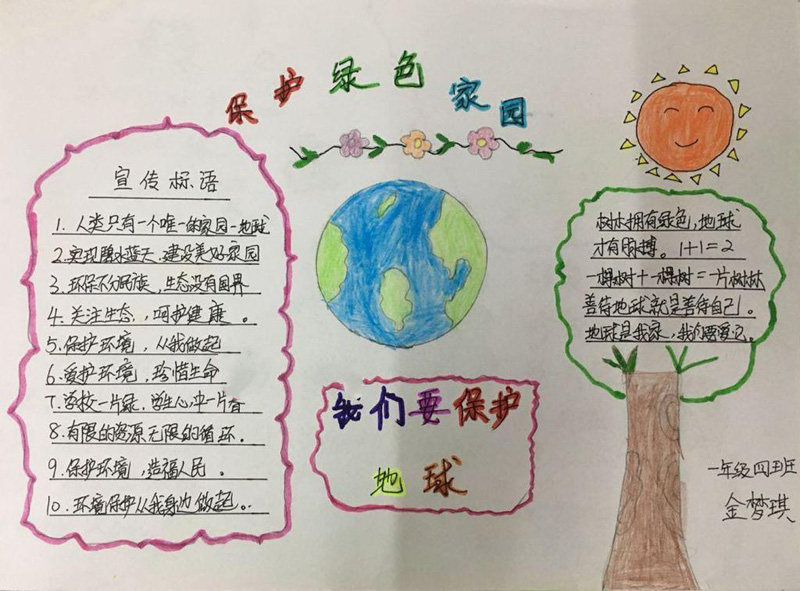 保护绿色家园
宣传标语
1. 人类只有一个唯一的家园—地球
2. 实现碧水蓝天,建设美好家园
3. 环保不分民族,生态没有国界
4. 关注生态,呵护健康。
5. 保护环境,从我做起
6. 爱护环境,珍惜生命
7. 学校一片绿,学生心中一片春
8. 有限的资源无限的循环.
9. 保护环境,造福人民。
10. 环境保护从我身边做起。
我们要保护
地球
树木拥有绿色,地球
才有脉搏。1+1=2
一棵树+一棵树=一片树林
善待地球就是善待自己。
地球是我家,我们要爱它。
一年级四班
金梦琪